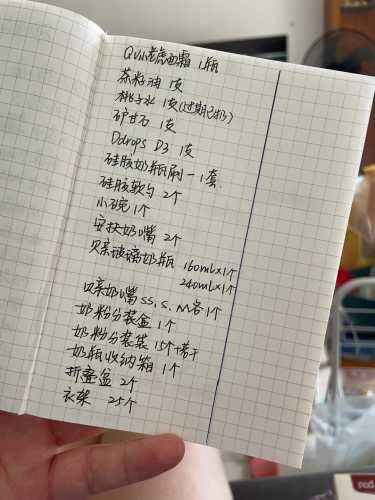 QV小老虎面霜 1瓶
茶籽油 1支
桃子水 1支(过期已扔)
炉甘石 1支
Ddrops D3 1支
硅胶奶瓶刷一1套
硅胶软勺 2个
小碗 1个
安抚奶嘴 2个
贝亲玻璃奶瓶 160ml×1个
240ml×1个
贝亲奶嘴 SS, S, M各1个
奶粉分装盒 1个
奶粉分装袋 15个+若干
奶瓶收纳箱 1个
折叠盆 2个
衣架 25个
red